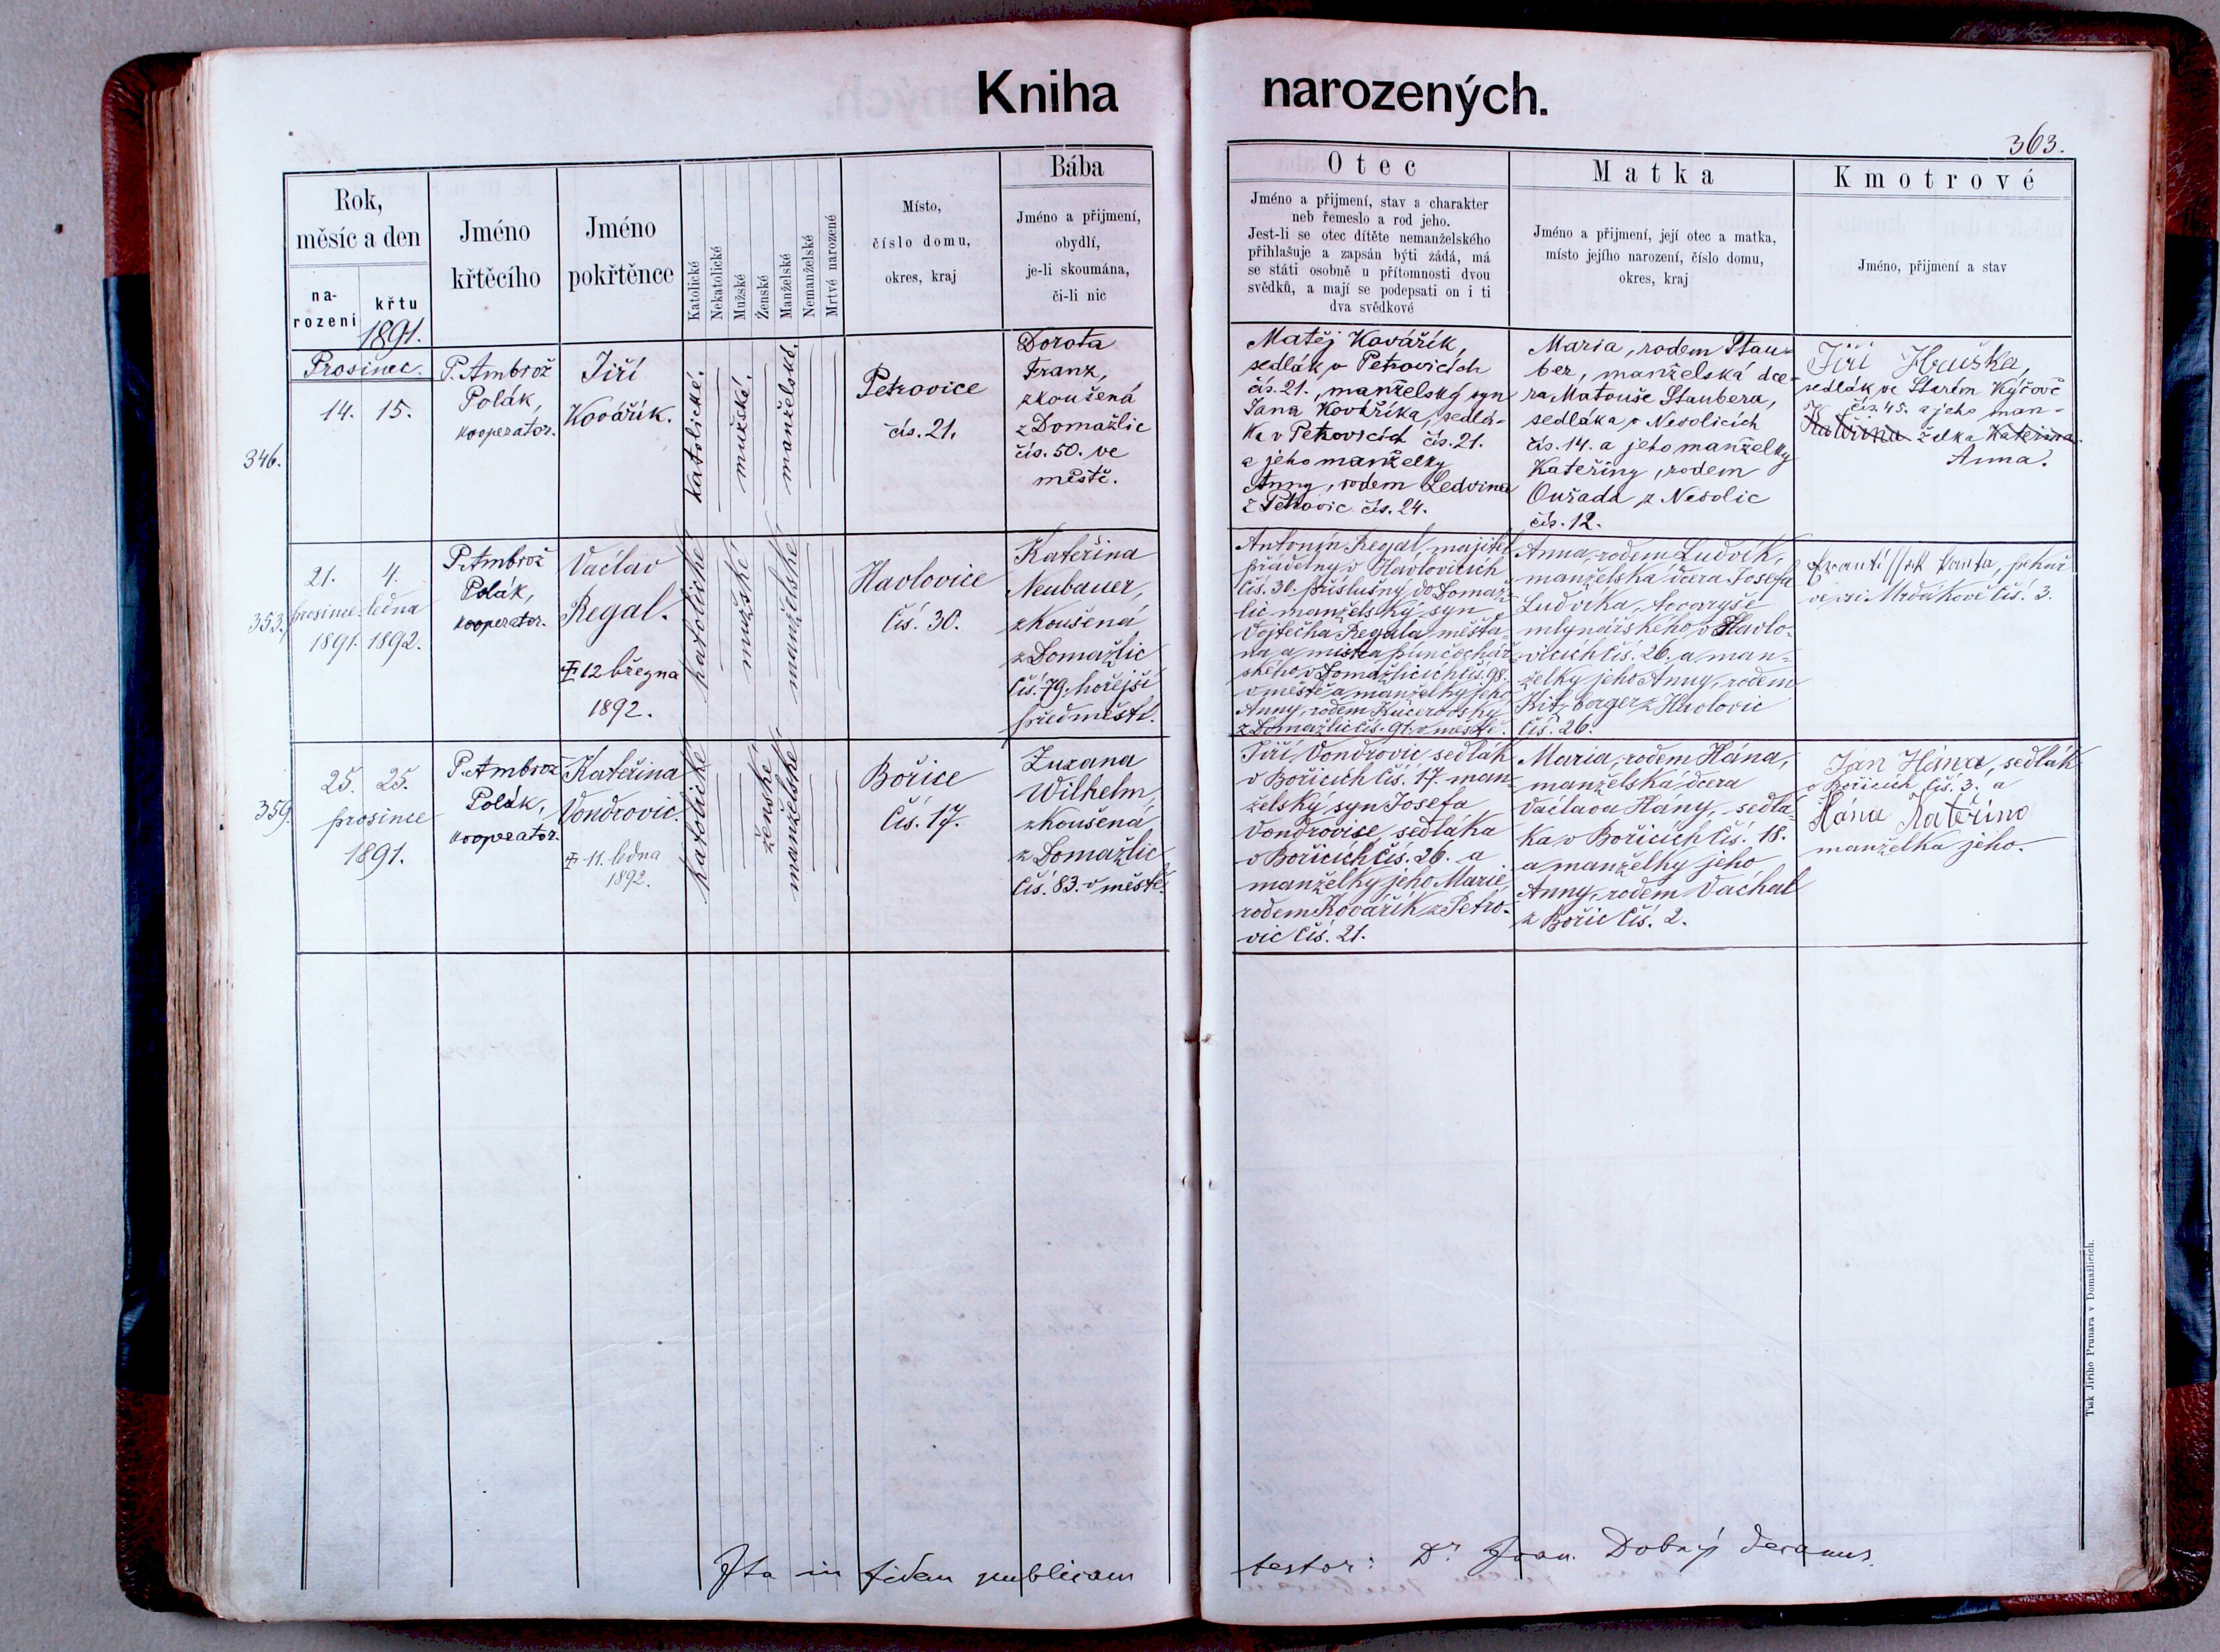 Kniha narozených.
363.
Rok,
měsíc a den
na-
rozeni
křtu
1891.
Jméno
křtěcího
Jméno
pokřtěnce
Katolické
Nekatolické
Mužské
Ženské
Manželské
Nemanželské
Mrtvé narozené
Místo,
číslo domu,
okres, kraj
Bába
Jméno a přijmení,
obydlí,
je-li skoumána,
či-li nic
Otec
Jméno a přijmení, stav a charakter
neb řemeslo a rod jeho.
Jest-li se otec dítěte nemanželského
přihlašuje a zapsán býti žádá, má
se státi osobně u přítomnosti dvou
svědků, a mají se podepsati on i ti
dva svědkové
Matka
Jméno a přijmení, její otec a matka,
místo jejího narození, číslo domu,
okres, kraj
Kmotrové
Jméno, přijmení a stav
346.
Prosinec.
14. 15.
P. Ambrož
Polák,
kooperator.
Jiří
Kovářík.
katolické.
mužské.
manželské.
Petrovice
čís. 21.
Dorota
Franz,
zkoušená
z Domažlic
čís. 50. ve
městě.
Matěj Kovářík,
sedlák v Petrovicích
čís. 21., manželský syn
Jana Kovaříka, sedlá-
ka v Petrovicích čís. 21.
a jeho manželky
Anny, rodem Ledvina
z Petrovic čís. 24.
Maria, rodem Stau-
ber, manželská dce-
ra Matouše Staubera,
sedláka v Nevolicích
čís. 14. a jeho manželky
Kateřiny, rodem
Ouřada z Nevolic
čís. 12.
Jiří Hruška,
sedlák ve Starém Kýčově
čís. 45. a jeho man-
Kateřina želka Kateřina
Anna.
353.
21. 4.
prosince ledna
1891. 1892.
P. Ambrož
Polák,
kooperator.
Václav
Regal.
12 března
1892.
katolické
mužské
manželské
Havlovice
čís. 30.
Kateřina
Neubauer,
zkoušená
z Domažlic
čís. 79. hořejší
předměstí.
Antonín Regal, majitel
prádelny v Havlovicích
čís. 30. příslušný do Domaž-
lic manželský syn
Vojtěcha Regala, měšťa-
na a mistra punčochář-
ského v Domažlicích čís. 98.
v městě a manželky jeho
Anny, rodem Kučerovsky
z Domažlic čís. 91. v městě.
Anna, rodem Ludvík,
manželská dcera Josefa
Ludvíka, tovaryše
mlynářského v Havlo-
vicích čís. 26. a man-
želky jeho Anny, rodem
Kitzberger z Havlovic
čís. 26.
ve vsi Mrdákově čís. 3.
359.
25. 25.
prosince
1891.
P. Ambrož
Polák,
kooperator.
Kateřina
Vondrovic.
11. ledna
1892.
katolické
ženské
manželské
Bořice
čís. 17.
Zuzana
Wilhelm,
zkoušená
z Domažlic
čís. 83. v městě.
Jiří Vondrovic, sedlák
v Bořicích čís. 17. man-
želský syn Josefa
Vondrovice, sedláka
v Bořicích čís. 26. a
manželky jeho Marie
rodem Kovařík z Petro-
vic čís. 21.
Maria, rodem Hána,
manželská dcera
Václava Hany, sedlá-
ka v Bořicích čís. 18.
a manželky jeho
Anny, rodem Váchal
z Bořic čís. 2.
Jan Hána, sedlák
v Bořicích čís. 3. a
Hána Kateřina
manželka jeho.
Ita in fidem publicam testor: Dr. Joan. Dobrý decanus.
Tisk Jiřího Prunara v Domažlicích.